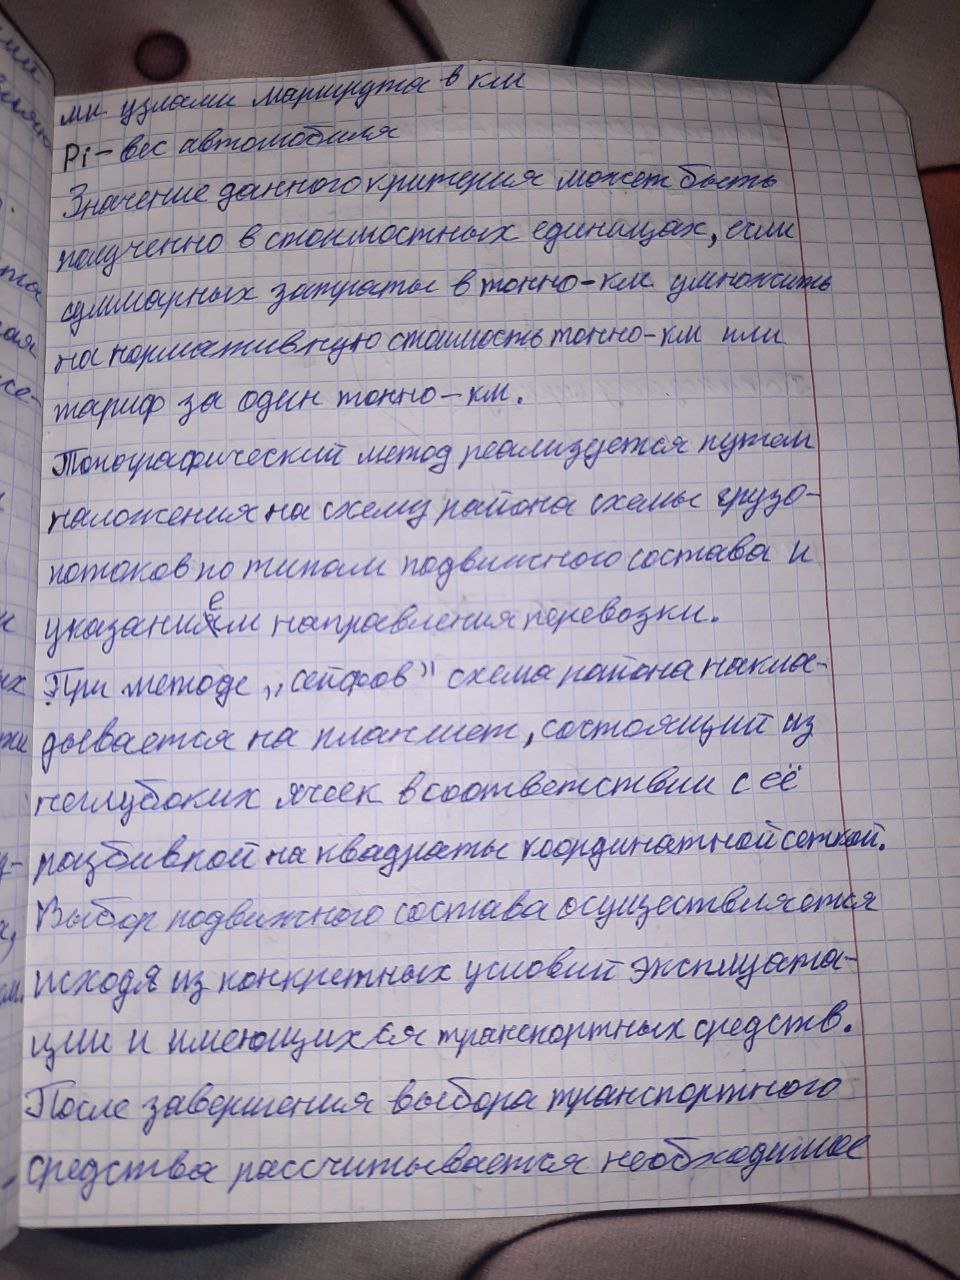 ми узлами маршрута в км
Pi – вес автомобиля
Значение данного критерия может быть
полученно в стоимостных единицах, если
суммарных затраты в тонно-км умножить
на нормативную стоимость тонно-км или
тариф за один тонно-км.
Топографический метод реализуется путем
наложения на схему района схемы грузо-
потоков по типам подвижного состава и
указанием направления перевозки.
При методе „сейфов" схема района накла-
дывается на планшет, состоящий из
неглубоких ячеек в соответствии с её
разбивкой на квадраты координатной сеткой.
Выбор подвижного состава осуществляется
исходя из конкретных условий эксплуата-
ции и имеющихся транспортных средств.
После завершения выбора транспортного
средства рассчитывается необходимое